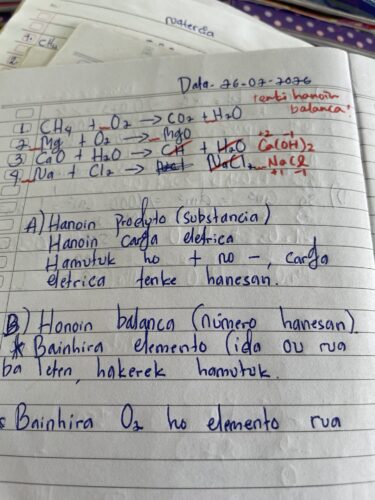 materia
1. CH4
2.
Data. 26-07-2026
tenki hanoin
balanca!
1. CH4 + O2 → CO2 + H2O
2. Mg + O2 → MgO
3. CaO + H2O → CH + H2O Ca(OH)2 +2 -1
4. Na + Cl2 → NaCl2 NaCl +1 -1
A) Hanoin Produto (substancia)
Hanoin carga eletrica
Hamutuk ho + no -, carga
eletrica tenke hanesan.
B) Honoin balanca (número hanesan).
* Bainhira elemento (ida ou rua
ba leten, hakerek hamutuk.
Bainhira O2 ho elemento rua